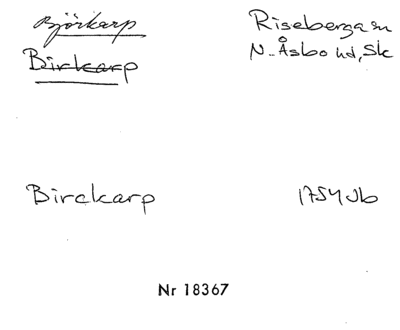 Björkarp Riseberga sn
Birkarp N. Åsbo hd, Sk
Birckarp 1754 Jb
Nr 18367